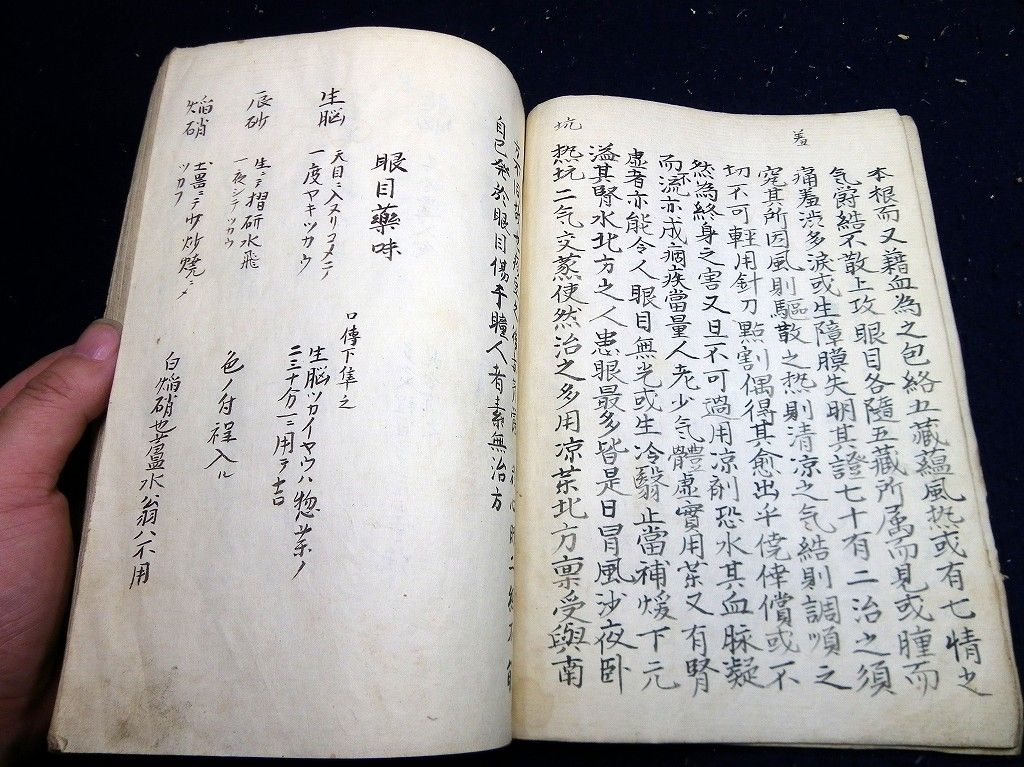 坑
羞
本根而又藉血為之包絡五藏蘊風热或有七情之
气爵結不散上攻眼目各隨五藏所属而見或腫而
痛羞渋多淚或生障膜失明其證七十有二治之須
究其所因風則驅散之热則清凉之气結則調順之
切不可輕用針刀點割偶得其愈出乎僥倖償或不
然為終身之害又旦不可過用凉剤恐氷其血脉凝
而流亦成病疾當量人老少气體虚實用茶又有腎
虚者亦能令人眼目無光或生冷翳止當補煖下元
溢其腎水北方之人患眼最多皆是日冒風沙夜卧
热坑二气交蒸使然治之多用凉茶北方禀受與南
自已発於眼目傷手瞳人者素無治方
眼目藥味
生脳 天目ニ入スリコメニテ
一度ヤキツカウ
口傳下隼之
生脳ツカイヤウハ惣茶ノ
二三十分一ニ用テ吉
辰砂 生ニテ摺研水飛
一夜シテツカウ
色ノ付程入ル
焔硝 土器ニテ少炒焼ニメ
ツカフ
白焔硝也蘆水翁ハ不用